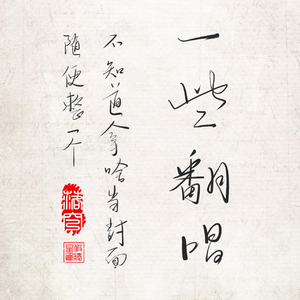 一些翻唱
不知道拿啥当封面
随便整一个